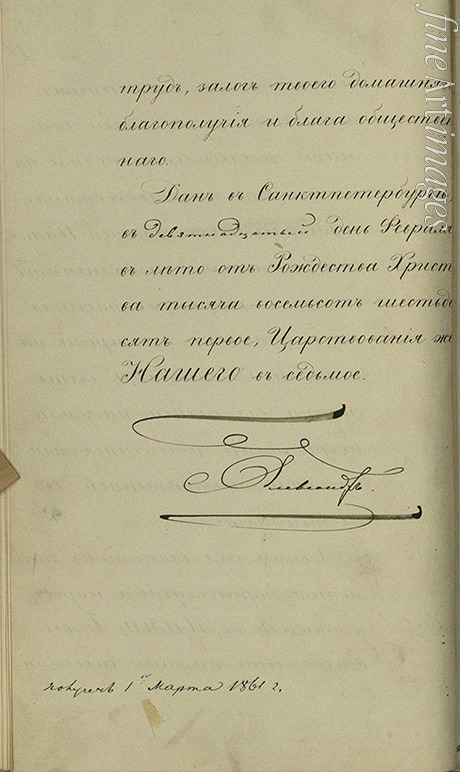 трудъ, залогъ твоего домашня
благополучія и блага обществен
наго.
Данъ въ Санктпетербургѣ,
въ девятнадцатый день Февраля
въ лѣто отъ Рождества Христ
ва тысяча восемьсотъ шестьде
сятъ первое, Царствованія же
Нашего въ седьмое.
Александръ.
1го Марта 1861 г.
fineArtimages